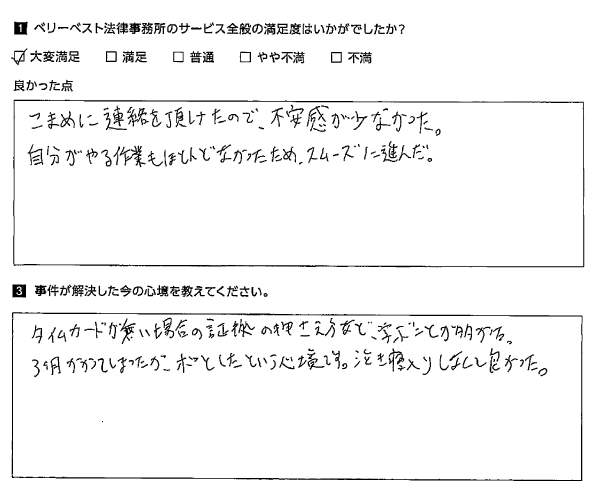 1 ベリーベスト法律事務所のサービス全般の満足度はいかがでしたか?
☑ 大変満足 □ 満足 □ 普通 □ やや不満 □ 不満
良かった点
こまめに連絡を頂けたので、不安感が少なかった。
自分がやる作業もほとんどなかったため、スムーズに進んだ。
3 事件が解決した今の心境を教えてください。
タイムカードが無い場合の証拠の押さえ方など、学ぶことが多かった。
3ヶ月かかってしまったが、ホッとしたという心境です。泣き寝入りしなくて良かった。